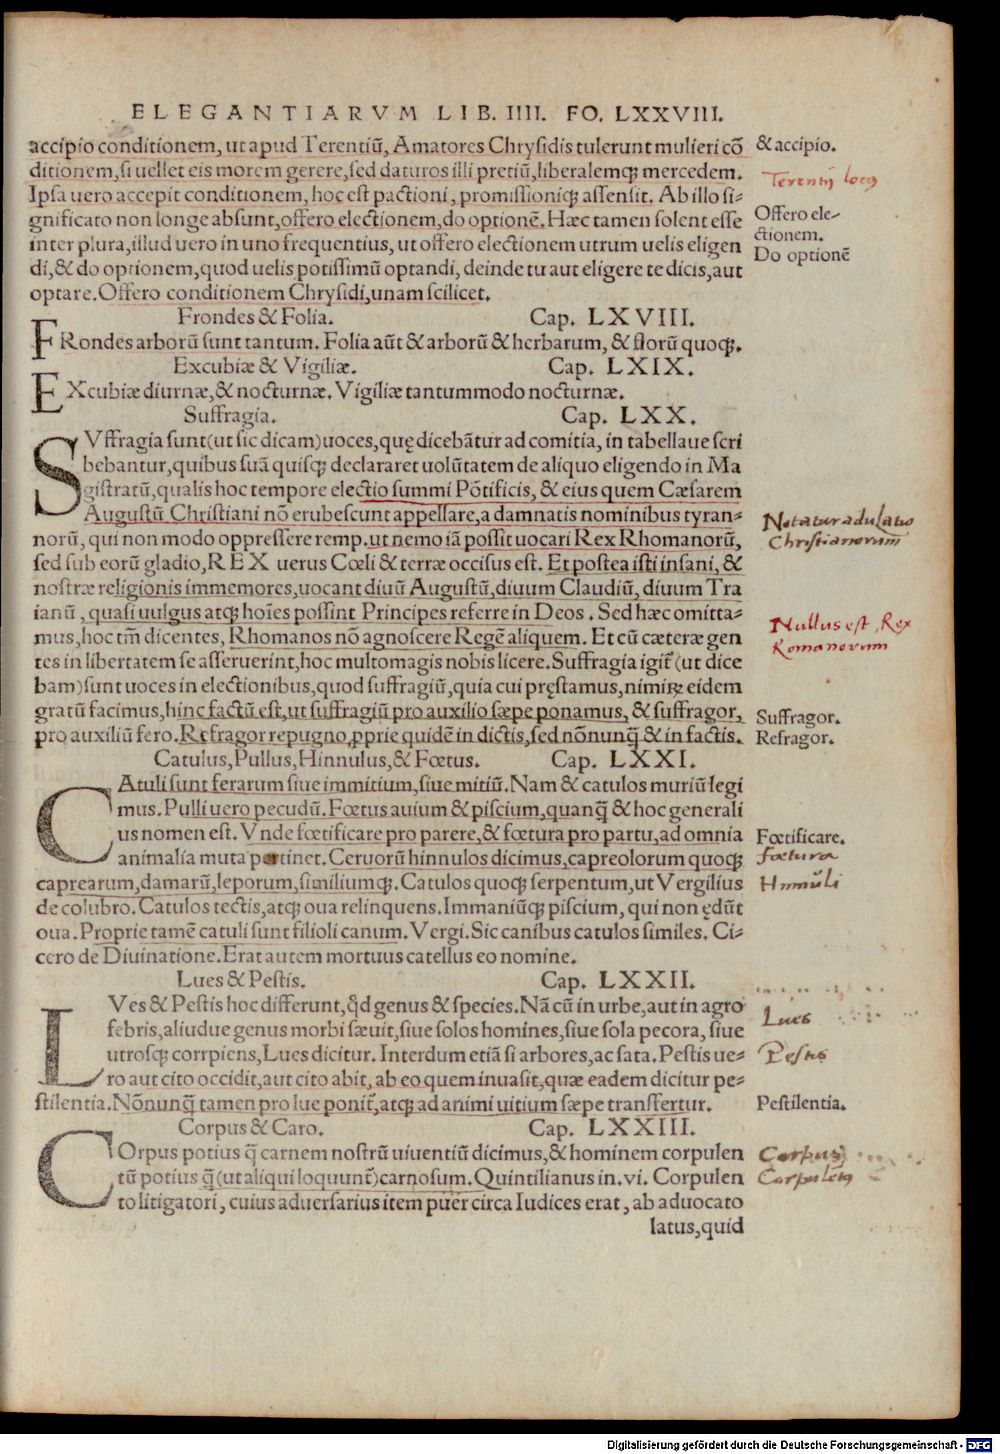 ELEGANTIARVM LIB. IIII. FO. LXXVIII.
accipio conditionem, ut apud Terentiū, Amatores Chrysidis tulerunt mulieri cō
& accipio.
ditionem, si uellet eis morem gerere, sed daturos illi pretiū, liberalemq; mercedem.
Terentij locus
Ipsa uero accepit conditionem, hoc est pactioni, promissioniq; assensit. Ab illo si-
gnificato non longe absunt, offero electionem, do optionē. Hæc tamen solent esse
Offero ele-
inter plura, illud uero in uno frequentius, ut offero electionem utrum uelis eligen
ctionem.
di, & do optionem, quod uelis potissimū optandi, deinde tu aut eligere te dicis, aut
Do optionē
optare. Offero conditionem Chrysidi, unam scilicet.
Frondes & Folia. Cap. LXVIII.
FRondes arborū sunt tantum. Folia aūt & arborū & herbarum, & florū quoq;.
Excubiæ & Vigiliæ. Cap. LXIX.
EXcubiæ diurnæ, & nocturnæ. Vigiliæ tantummodo nocturnæ.
Suffragia. Cap. LXX.
SVffragia sunt (ut sic dicam) uoces, quę dicebātur ad comitia, in tabellaue scri
bebantur, quibus suā quisq; declararet uolūtatem de aliquo eligendo in Ma
gistratū, qualis hoc tempore electio summi Pōtificis, & eius quem Cæsarem
Augustū Christiani nō erubescunt appellare, a damnatis nominibus tyran-
Notatur adulatio
norū, qui non modo oppressere remp. ut nemo iā possit uocari Rex Rhomanorū,
Christianorum
sed sub eorū gladio, REX uerus Cœli & terræ occisus est. Et postea isti insani, &
nostræ religionis immemores, uocant diuū Augustū, diuum Claudiū, diuum Tra
ianū, quasi uulgus atq; hoīes possint Principes referre in Deos. Sed hæc omitta-
mus, hoc tm̄ dicentes, Rhomanos nō agnoscere Regē aliquem. Et cū cæteræ gen
Nullus est Rex
Romanorum
tes in libertatem se asseruerint, hoc multomagis nobis licere. Suffragia igit̄ (ut dice
bam) sunt uoces in electionibus, quod suffragiū, quia cui pręstamus, nimirꝝ eidem
gratū facimus, hinc factū est, ut suffragiū pro auxilio sæpe ponamus, & suffragor,
Suffragor.
pro auxiliū fero. Refragor repugno, ꝓprie quidē in dictis, sed nōnunq̄ & in factis.
Refragor.
Catulus, Pullus, Hinnulus, & Fœtus. Cap. LXXI.
CAtuli sunt ferarum siue immitium, siue mitiū. Nam & catulos muriū legi
mus. Pulli uero pecudū. Fœtus auium & piscium, quanq̄ & hoc generali
us nomen est. Vnde fœtificare pro parere, & fœtura pro partu, ad omnia
Fœtificare.
animalia muta pertinet. Ceruorū hinnulos dicimus, capreolorum quoq;
fœtura
caprearum, damarū, leporum, similiumq;. Catulos quoq; serpentum, ut Vergilius
Hinnuli
de colubro. Catulos tectis, atq; oua relinquens. Immaniūq; piscium, qui non ędūt
oua. Proprie tamē catuli sunt filioli canum. Vergi. Sic canibus catulos similes. Ci-
cero de Diuinatione. Erat autem mortuus catellus eo nomine.
Lues & Pestis. Cap. LXXII.
LVes & Pestis hoc differunt, qd̄ genus & species. Nā cū in urbe, aut in agro
Lues
febris, aliudue genus morbi sæuit, siue solos homines, siue sola pecora, siue
utrosq; corrpiens, Lues dicitur. Interdum etiā si arbores, ac sata. Pestis ue-
Pestis
ro aut cito occidit, aut cito abit, ab eo quem inuasit, quæ eadem dicitur pe-
stilentia. Nōnunq̄ tamen pro lue ponit̄, atq; ad animi uitium sæpe transfertur.
Pestilentia.
Corpus & Caro. Cap. LXXIII.
COrpus potius q̄ carnem nostrū uiuentiū dicimus, & hominem corpulen
Corpus
tū potius q̄ (ut aliqui loquunt̄) carnosum. Quintilianus in. vi. Corpulen
Corpuletus
to litigatori, cuius aduersarius item puer circa Iudices erat, ab aduocato
latus, quid
Digitalisierung gefördert durch die Deutsche Forschungsgemeinschaft - DFG